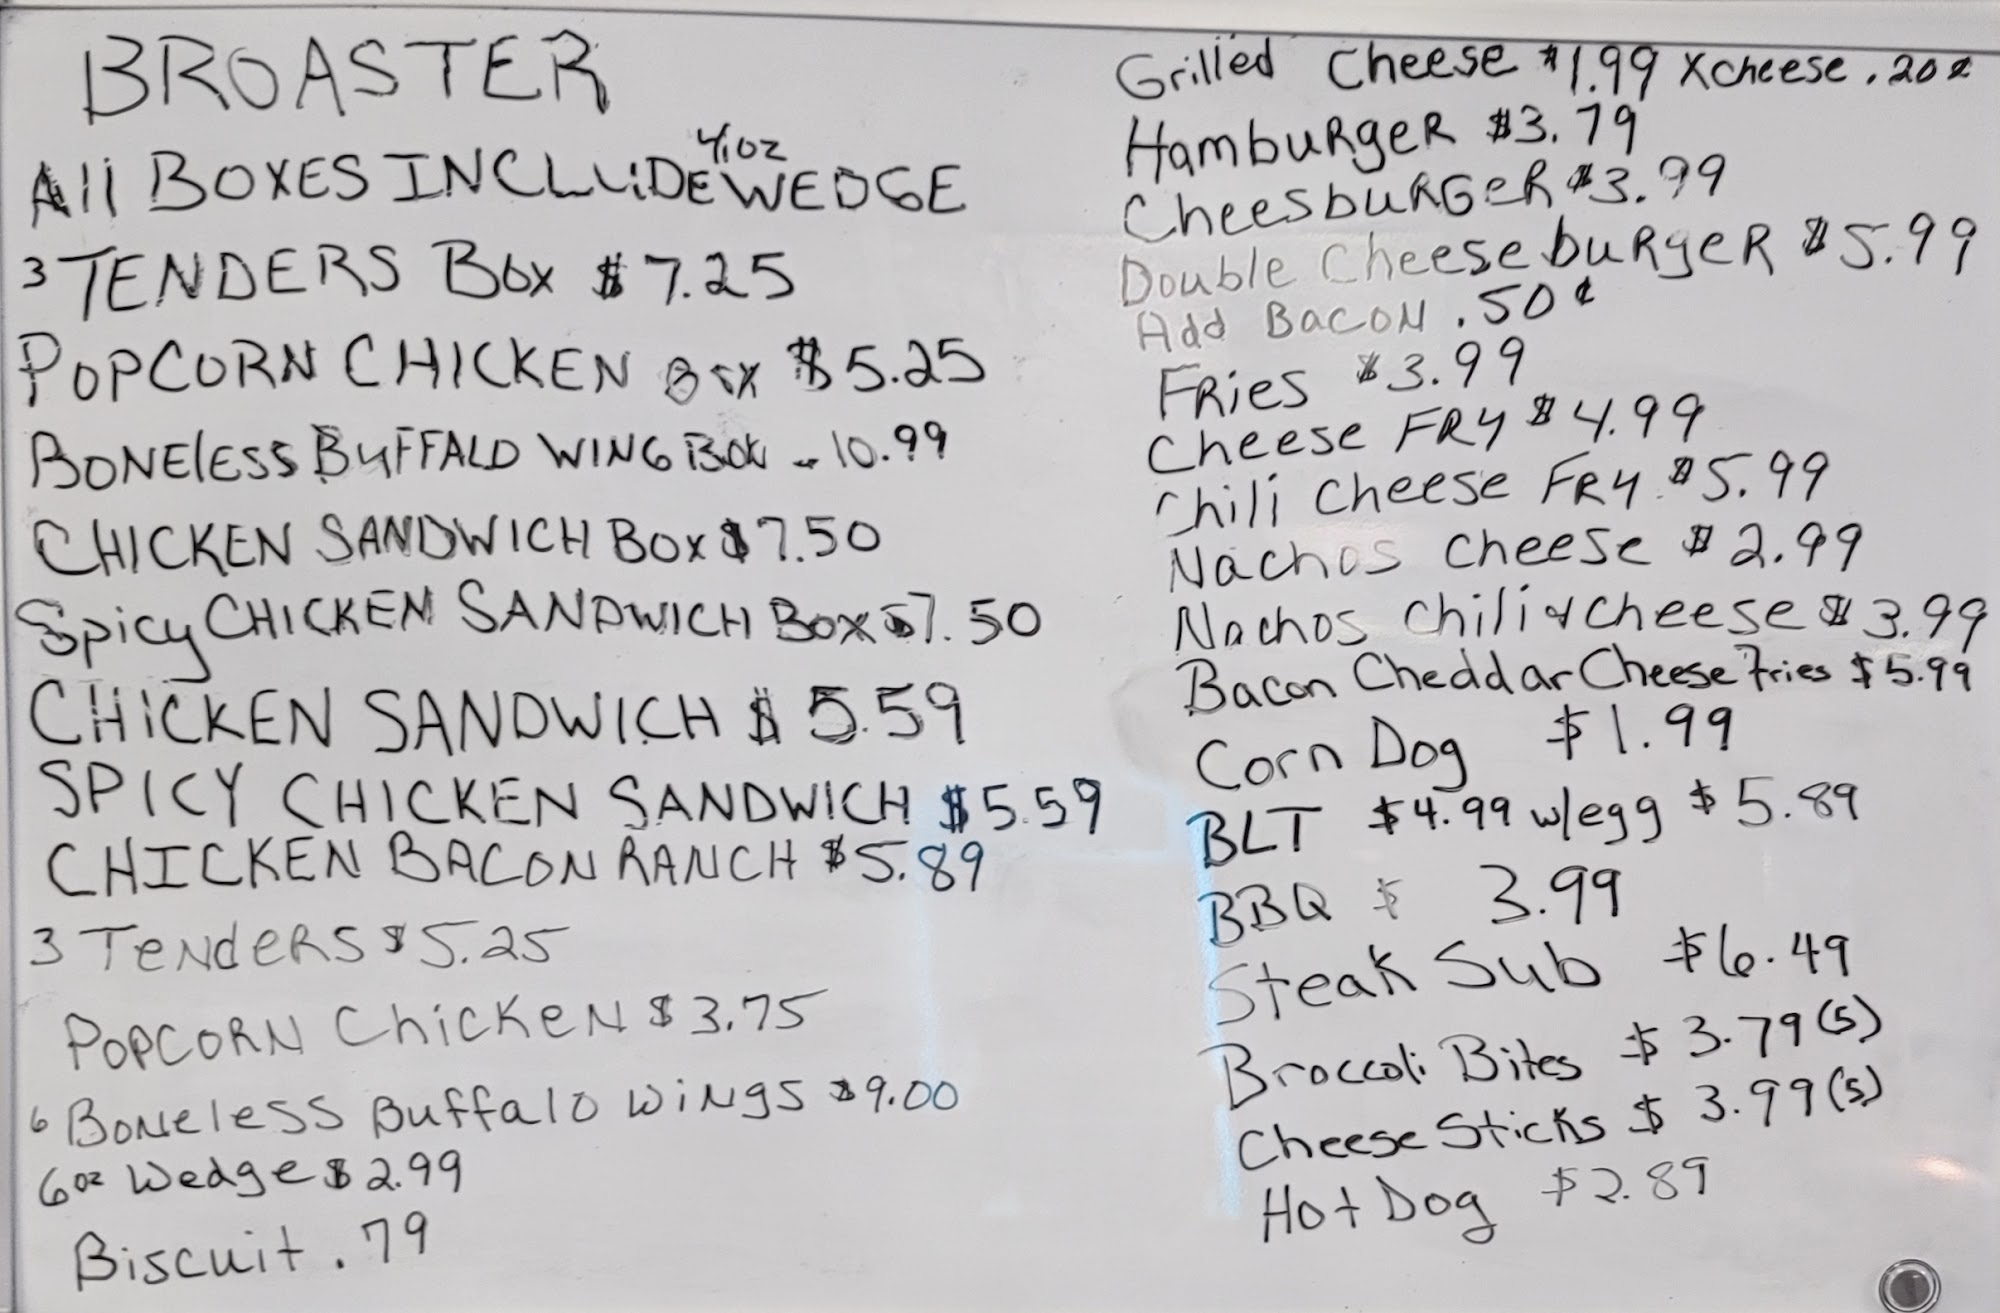 BROASTER
All BOXES INCLUDE 4oz WEDGE
3 TENDERS Box $7.25
POPCORN CHICKEN Box $5.25
BONElESS BuFFALO WING Box - 10.99
CHICKEN SANDWICH Box $7.50
Spicy CHICKEN SANDWICH Box $7.50
CHICKEN SANDWICH $5.59
SPICY CHICKEN SANDWICH $5.59
CHICKEN BACON RANCH $5.89
3 TenderS $5.25
POPCORN Chicken $3.75
6 Boneless Buffalo Wings $9.00
6oz Wedge $2.99
Biscuit .79
Grilled Cheese $1.99 Xcheese .20¢
Hamburger $3.79
Cheesburger $3.99
Double Cheeseburger $5.99
Add Bacon .50¢
Fries $3.99
Cheese Fry $4.99
Chili Cheese Fry $5.99
Nachos Cheese $2.99
Nachos Chili & Cheese $3.99
Bacon Cheddar Cheese Fries $5.99
Corn Dog $1.99
BLT $4.99 w/egg $5.89
BBQ $ 3.99
Steak Sub $6.49
Broccoli Bites $3.79 (5)
Cheese Sticks $3.99 (5)
Hot Dog $2.89